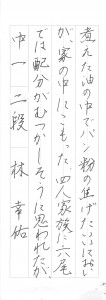 煮えた油の中でパン粉の焦げたいいにおい
が、家の中にこもった。四人家族に六尾
では配分がむつかしそうに思われたが
中一 二段 林 幸佑